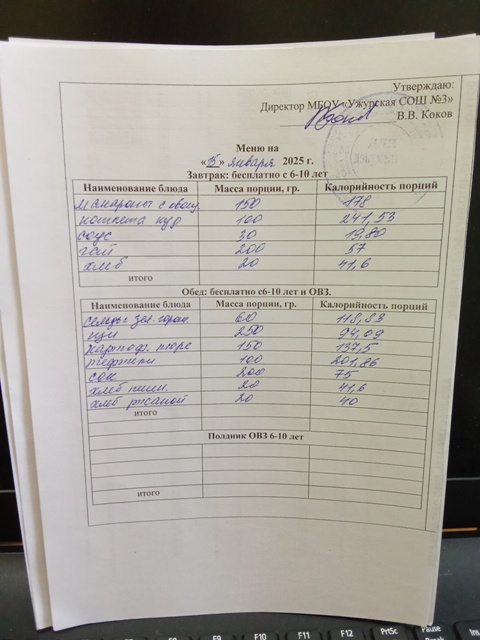 Утверждаю:
Директор МБОУ «Ужурская СОШ №3»
В.В. Коков
Меню на
« » января 2025 г.
Завтрак: бесплатно с 6-10 лет
Наименование блюда Масса порции, гр. Калорийность порций
макароны с овощ. 150 178
котлета кур 100 241,53
соус 30 19,80
чай 200 57
хлеб 20 41,6
итого
Обед: бесплатно с6-10 лет и ОВЗ.
Наименование блюда Масса порции, гр. Калорийность порций
зел. горош. 60 118,83
щи 250 94,09
картоф. пюре 150 137,5
тефтели 100 201,86
сок 200 75
хлеб пшен. 20 41,6
хлеб ржаной 20 40
итого
Полдник ОВЗ 6-10 лет
итого
F9 F10 F11 F12 PrtSc Pause